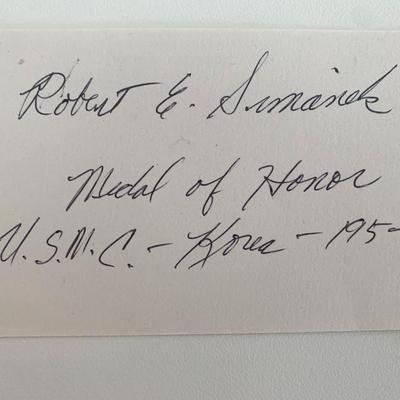 Robert E. Simanek
Medal of Honor
U.S.M.C. - Korea - 195